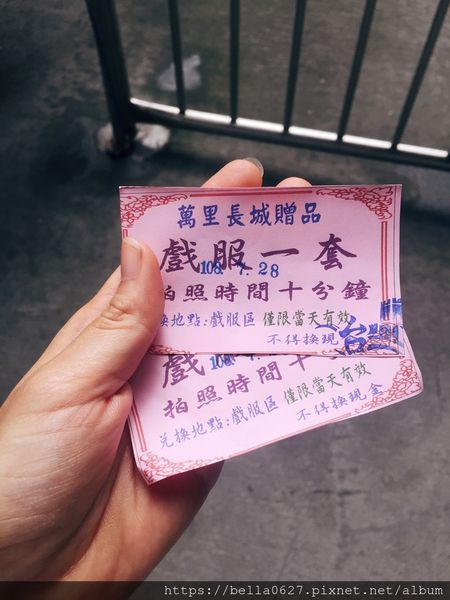 萬里長城贈品
戲服一套
108. 7. 28
拍照時間十分鐘
兌換地點:戲服區 僅限當天有效
不得換現
戲
108.
拍照時間十
兌換地點:戲服區 僅限當天有效
不得換現金
https://bella0627.pixnet.net/album